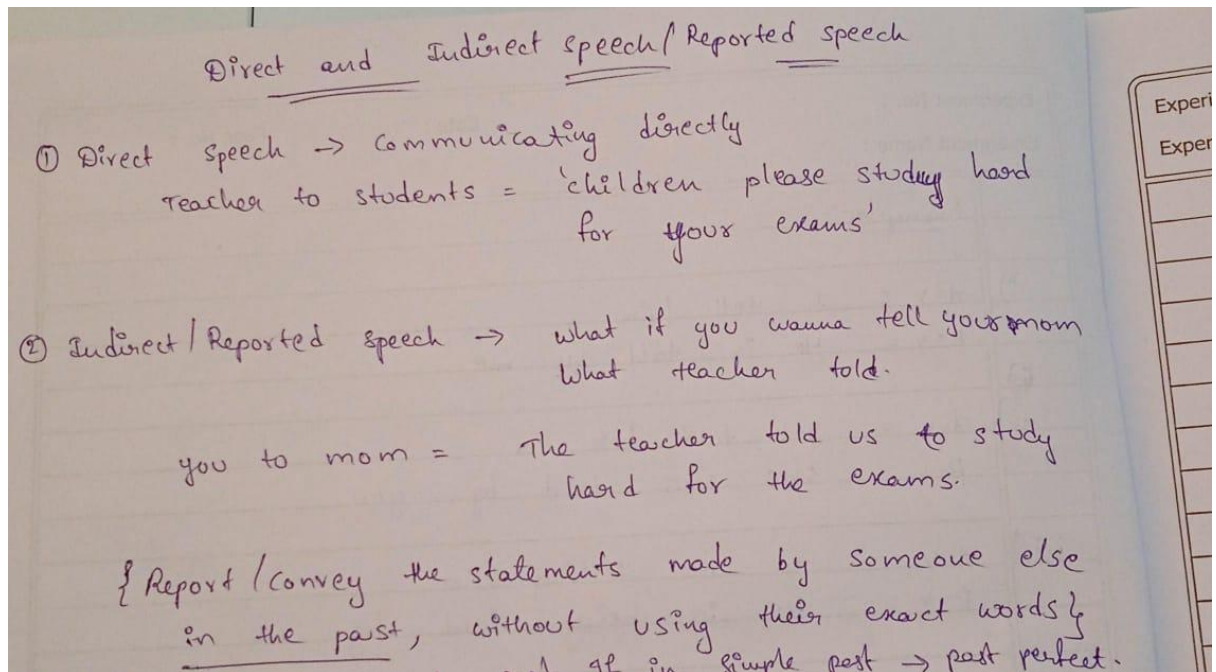 Direct and Indirect speech/ Reported speech
① Direct speech → Communicating directly
Teacher to students = 'children please study hard
for your exams'
② Indirect / Reported speech → what if you wanna tell your mom
what teacher told.
you to mom = The teacher told us to study
hard for the exams.
{ Report / convey the statements made by someone else
in the past, without using their exact words }
If in simple past → past perfect.
Experi
Exper